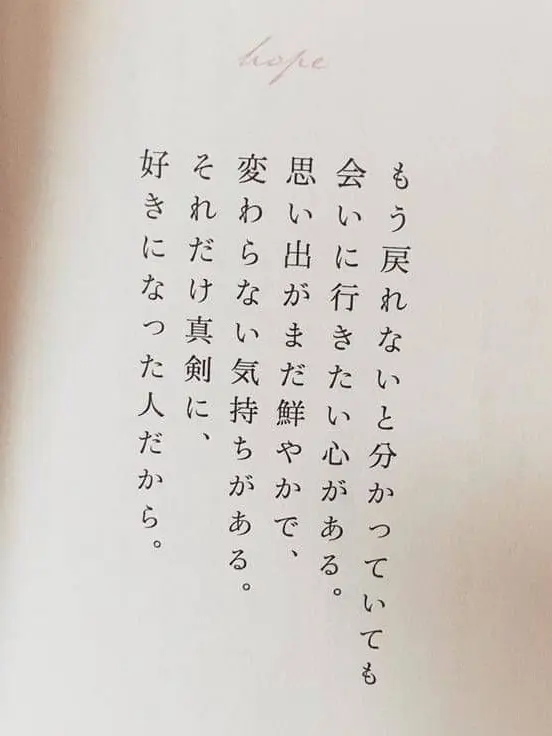 hope
もう戻れないと分かっていても
会いに行きたい心がある。
思い出がまだ鮮やかで、
変わらない気持ちがある。
それだけ真剣に、
好きになった人だから。